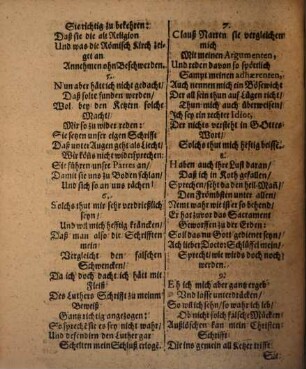 Sie richtig zu bekehren:
Daß sie die alt Religion
Und was die Römisch Kirch zeiget an
Annehmen ohn Beschwerden.
5.
Nun aber hätt nicht gedacht/
Daß solt funden werden/
Wol bey den Ketzern solche Macht/
Mir so zu wider reden:
Sie setzen unser eigen Schrifft
Daß unter Augen geht als Liecht/
Wir köns nicht widersprechen:
Sie setzen unser Patres an/
Damit sie uns zu Boden schlan/
Und sich so an uns rächen!
6.
Solchs thut mir sehr verdrießlich seyn/
Und wil mich hefftig kräncken/
Daß man also die Schrifften mein
Vergleicht den falschen Schwencken/
Da ich doch dacht ich hätt mit Fleiß
Des Luthers Schrifft zu meinem Beweiß
Gantz richtig angezogen:
So spricht sie es sey nicht wahr/
Und defendirn den Luther gar
Schelten mein Schluß erlogē.
7.
Clauß Narren sie vergleichen mich
Mit meinen Argumenten,
Und reden davon so spötlich
Sampt meinen adhærenten,
Auch nennen mich ein Bösewicht
Der all sein thun auf Lägen richt
Thun mich auch überweisen/
Ich sey ein rechter Idiot,
Der nichts versteh in Gottes Wort/
Solchs thut mich hefftig beissē.
8.
Haben auch ihre Lust daran/
Daß ich in Koth gefallen/
Sprechen/ seht da den heil-Mañ/
Den Frömbsten unter allen/
Nemt wahr wie ist er so behend
Er hat zuvor das Sacrament
Geworffen zu der Erden:
Soll das nu Gott gedienet seyn/
Ach lieber Doctor Schlüssel mein/
Sprecht/ wie wirds doch noch werden.
9.
Eh ich mich aber gantz ergeb
Und lasse unterdrücken/
So wil ich sehn/ so wahr ich leb/
Ob nicht solch falsche Mücken/
Außlöschen kan mein Christen-Schrifft
Die ins gemein all Ketzer trifft
Sie